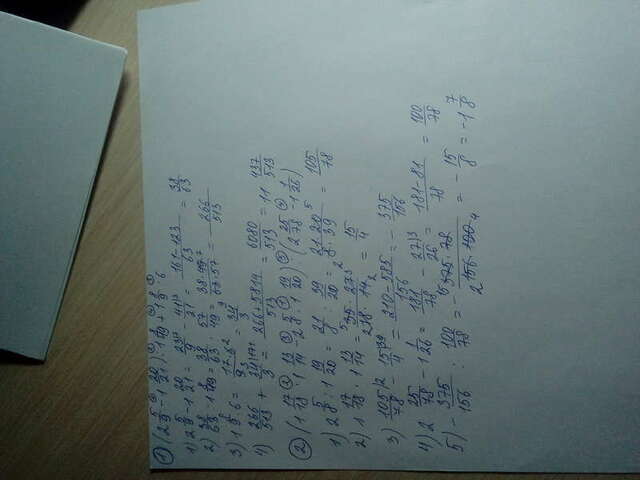 ① (2 5/9 - 1 20/21) : 1 8/49 + 1 8/9 · 6
1) 2 5/9 - 1 20/21 = 23/9 - 41/21 = (161-123)/63 = 38/63
2) 38/63 : 1 8/49 = 38/63 : 57/49 = (38·49)/(63·57) = 266/513
3) 1 8/9 · 6 = (17·6)/9 = 34/3
4) 266/513 + 34/3 = (266+5814)/513 = 6080/513 = 11 437/513
② (1 17/18 · 1 13/14 - 2 5/8 : 1 19/20) : (2 25/78 - 1 1/26)
1) 2 5/8 : 1 19/20 = 21/8 : 39/20 = (21·20)/(8·39) = 105/78
2) 1 17/18 · 1 13/14 = (35·27)/(18·14) = 15/4
3) 105/78 - 15/4 = (210-585)/156 = - 375/156
4) 2 25/78 - 1 1/26 = 181/78 - 27/26 = (181-81)/78 = 100/78
5) - 375/156 : 100/78 = - (375·78)/(156·100) = - 15/8 = -1 7/8